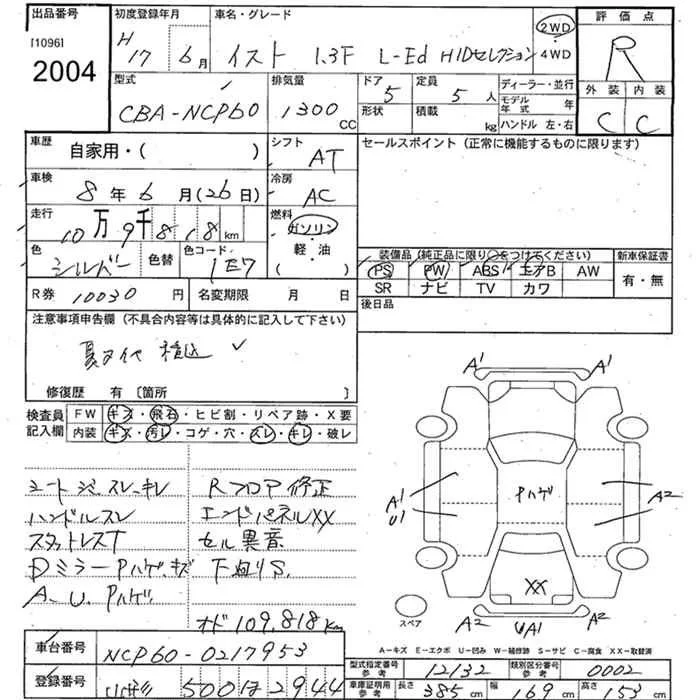 出品番号
[1096]
2004
初度登録年月
H
17年 6月
車名・グレード
イスト 1.3F L-Ed HIDセレクション
2WD
4WD
評価点
R
外装 内装
C C
型式
CBA-NCP60
排気量
1300
CC
ドア
5
形状
定員
5人
積載
kg
ディーラー・並行
モデル年式 年
ハンドル 左・右
車歴
自家用・( )
シフト
AT
セールスポイント (正常に機能するものに限ります)
車検
8年 6月(26日)
冷房
AC
走行
10万9千818km
燃料
ガソリン
軽・油
( )
色
シルバー
色替
色コード
1E7
装備品(純正品に限り○をつけてください)
PS PW ABS エアB AW
SR ナビ TV カワ
新車保証書
有・無
R券 10030円
名変期限 月 日
後日品
注意事項申告欄 (不具合内容等は具体的に記入して下さい)
夏タイヤ 積込 ✓
修復歴 有 〔箇所 〕
検査員
記入欄
FW キズ・飛石・ヒビ割・リペア跡・X要
内装 キズ・汚レ・コゲ・穴・スレ・キレ・破レ
シートジミ、スレ、キレ
ハンドルスレ
スタットレスT
Dミラー Pハゲ、キズ
A.U.Pハゲ
Rフロア修正
エンドパネルXX
セル異音
下廻りS.
オド109,818Km
A1 A1
A1
U1
Pハゲ
A2
XX
スペア
A2 UA1 A2
A-キズ E-エクボ U-凹み W-補修跡 S-サビ C-腐食 XX-取替済
車台番号
NCP60-0217953
登録番号
山形 500 ほ 2944
型式指定番号
参考
12132
類別区分番号
参考
0002
車庫証明用
参考
長さ 385cm 幅 169cm 高さ 153cm